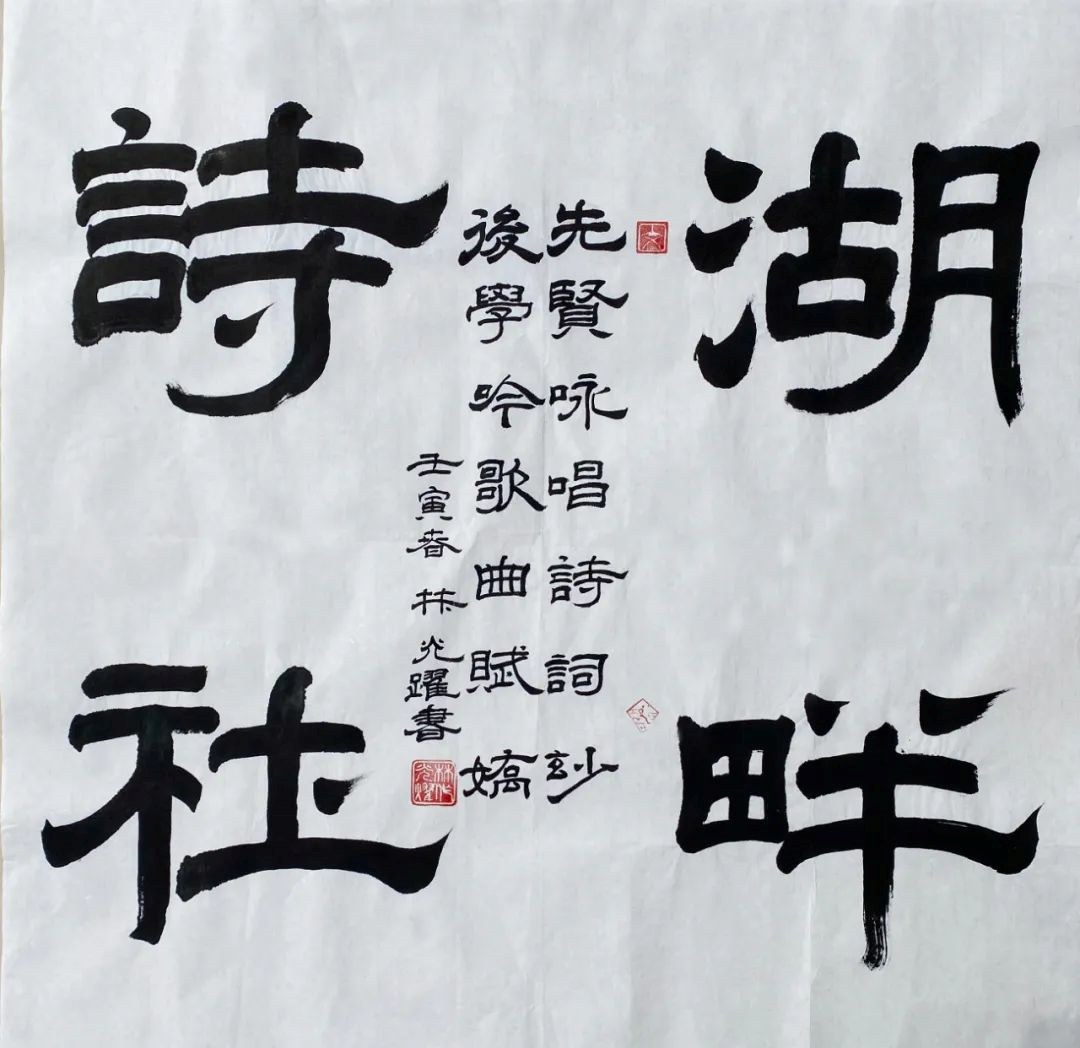 湖畔
詩社
先賢咏唱詩詞玅
後學吟歌曲賦嬌
壬寅春 林光躍書